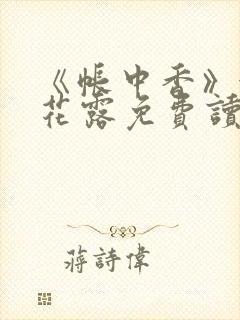 《帳中香》
花露免費讀
蔣詩偉